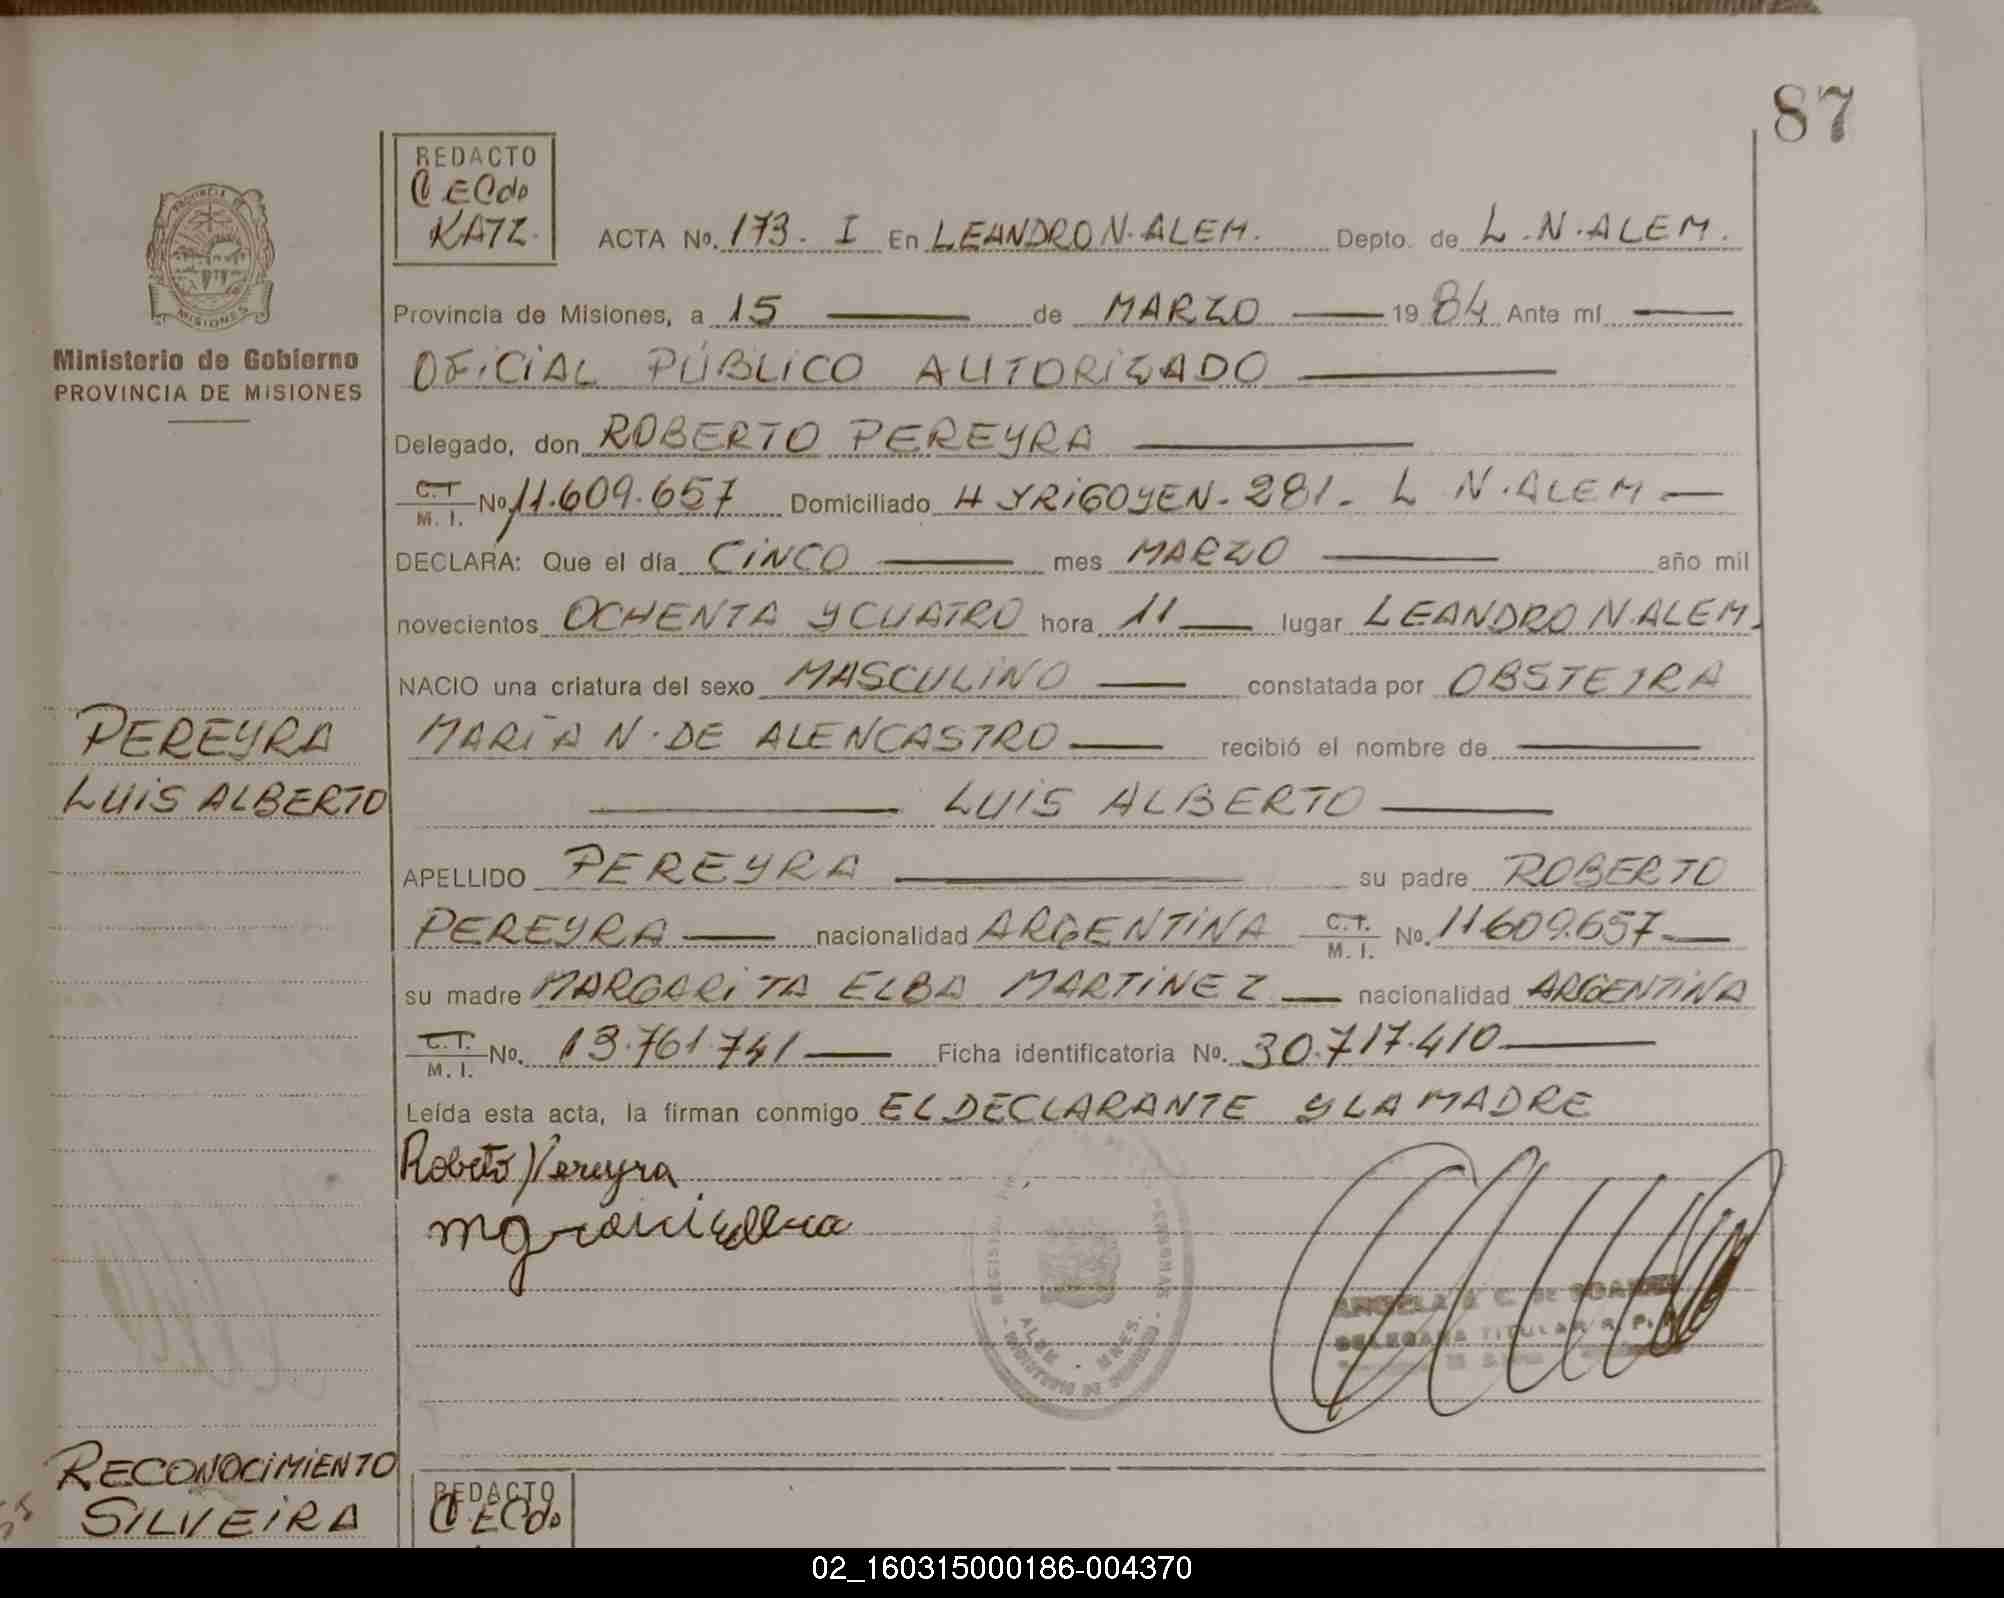 87
REDACTO
C ECdo
KATZ.
ACTA No. 173. I En LEANDRO N. ALEM. Depto. de L. N. ALEM.
PROVINCIA DE
MISIONES
Ministerio de Gobierno
PROVINCIA DE MISIONES
Provincia de Misiones, a 15 de MARZO 1984 Ante mí
OFICIAL PÚBLICO AUTORIZADO
Delegado, don ROBERTO PEREYRA
C.T. M. I. No 11.609.657 Domiciliado H YRIGOYEN - 281 - L N. ALEM
DECLARA: Que el día CINCO mes MARZO año mil
novecientos OCHENTA Y CUATRO hora 11 lugar LEANDRO N. ALEM.
NACIO una criatura del sexo MASCULINO constatada por OBSTETRA
MARÍA N. DE ALENCASTRO recibió el nombre de
LUIS ALBERTO
PEREYRA
LUIS ALBERTO
APELLIDO PEREYRA su padre ROBERTO
PEREYRA nacionalidad ARGENTINA C.T. M. I. No. 11.609.657
su madre MARGARITA ELBA MARTINEZ nacionalidad ARGENTINA
C.T. M. I. No. 13.761.741 Ficha identificatoria No. 30.717.410
Leída esta acta, la firman conmigo EL DECLARANTE Y LA MADRE
Roberto Pereyra
ALEM - MNES.
ANGELA C. DE
DELEGADA TITULAR R. P.
RECONOCIMIENTO
SILVEIRA
REDACTO
C. ECdo
02_160315000186-004370